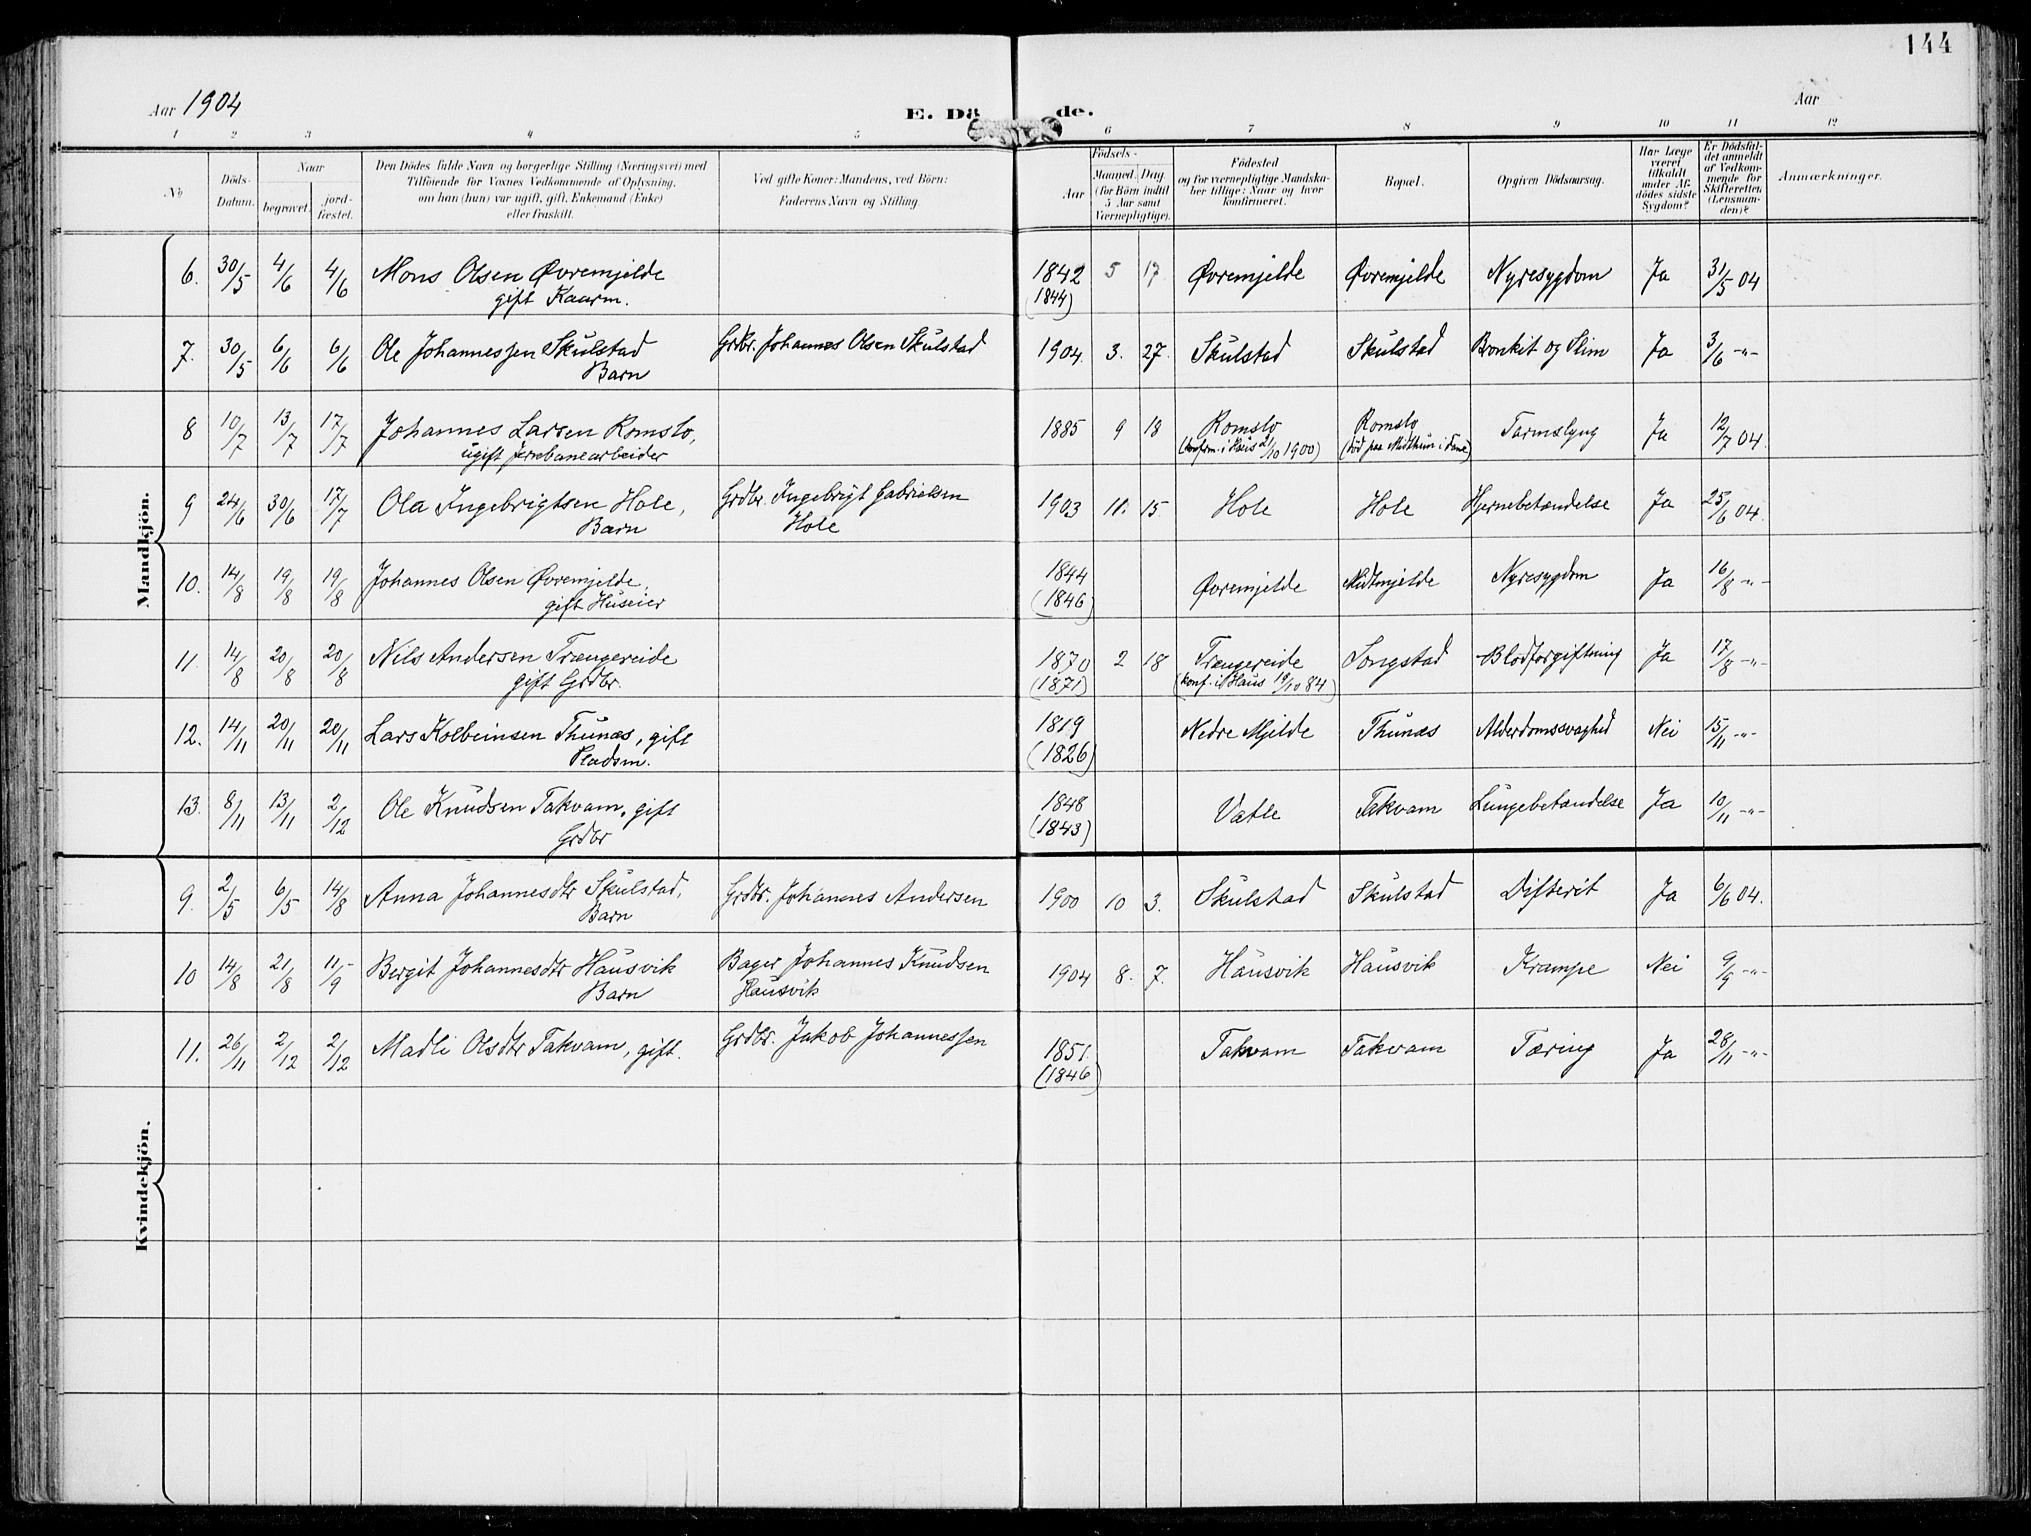 144
Aar 1904
E. Dö de.
Aar
1 2 3 4 5 6 7 8 9 10 11 12
No
Döds-Datum.
Naar
begravet.
jord-fæstet.
Den Dödes fulde Navn og borgerlige Stilling (Næringsvei) med
Tilföiende for Voxnes Vedkommende af Oplysning,
om han (hun) var ugift, gift, Enkemand (Enke)
eller fraskilt.
Ved gifte Koner: Mandens, ved Börn:
Faderens Navn og Stilling.
Födsels-
Aar
Maaned. Dag.
(for Börn indtil
5 Aar samt
Værnepligtige).
Födested
og for værnepligtige Mandska-
ber tillige: Naar og hvor
konfirmeret.
Bopæl.
Opgiven Dödsaarsag.
Har Læge
været
tilkaldt
under Af-
dödes sidste
Sygdom?
Er Dödsfal-
det anmeldt
af Vedkom-
mende for
Skifteretten
(Lensman-
den)?
Anmærkninger.
Mandkjön.
6. 30/5 4/6 4/6 Mons Olsen Øvremjelde 1842 5 17 Øvremjelde Øvremjelde Nyresygdom Ja 31/5 04
gift Kaarm. (1844)
7. 30/5 6/6 6/6 Ole Johannessen Skulstad Grdbr. Johannes Olsen Skulstad 1904. 3. 27. Skulstad Skulstad Bronkit og Slim Ja 3/6 -"-
Barn
8 10/7 13/7 17/7 Johannes Larsen Romslo, 1885 9 18 Romslo Romslo Tarmslyng Ja 12/7 04.
ugift Jernbanearbeider (konfirm. i Haus 21/10 1900) (död paa Midthun i Fane)
9 24/6 30/6 17/7 Ola Ingebrigtsen Hole, Grdbr. Ingebrigt Gabrielsen 1903 11. 15. Hole Hole Hjernebetændelse Ja 25/6 04.
Barn Hole
10. 14/8 19/8 19/8 Johannes Olsen Øvremjelde, 1844 Øvremjelde Midtmjelde Nyresygdom Ja 16/8 -"-
gift Huseier (1846)
11. 14/8 20/8 20/8 Nils Andersen Trængereide 1870 2 18 Trængereide Songstad Blodforgiftning Ja 17/8 -"-
gift Grdbr. (1871) (konf. i Haus 19/10 84)
12. 14/11 20/11 20/11 Lars Kolbeinsen Thunæs, gift 1819 Nedre Mjelde Thunæs Alderdomssvaghed Nei 15/11 -"-
Pladsm. (1826)
13. 8/11 13/11 2/12 Ole Knudsen Takvam, gift 1848 Vatle Takvam Lungebetændelse Ja 10/11 -"-
Grdbr (1843)
Kvindekjön.
9. 2/5 6/5 14/8 Anna Johannesdtr Skulstad, Grdbr. Johannes Andersen 1900 10 3. Skulstad Skulstad Difterit Ja 6/6 04.
Barn
10 14/8 21/8 11/9 Bergit Johannesdtr Hausvik Bager Johannes Knudsen 1904 8. 7. Hausvik Hausvik Krampe Nei 9/9 -"-
Barn Hausvik
11. 26/11 2/12 2/12 Madli Olsdtr Takvam, gift. Grdbr. Jakob Johannessen 1851. Takvam Takvam Tæring Ja 28/11 -"-
(1846)